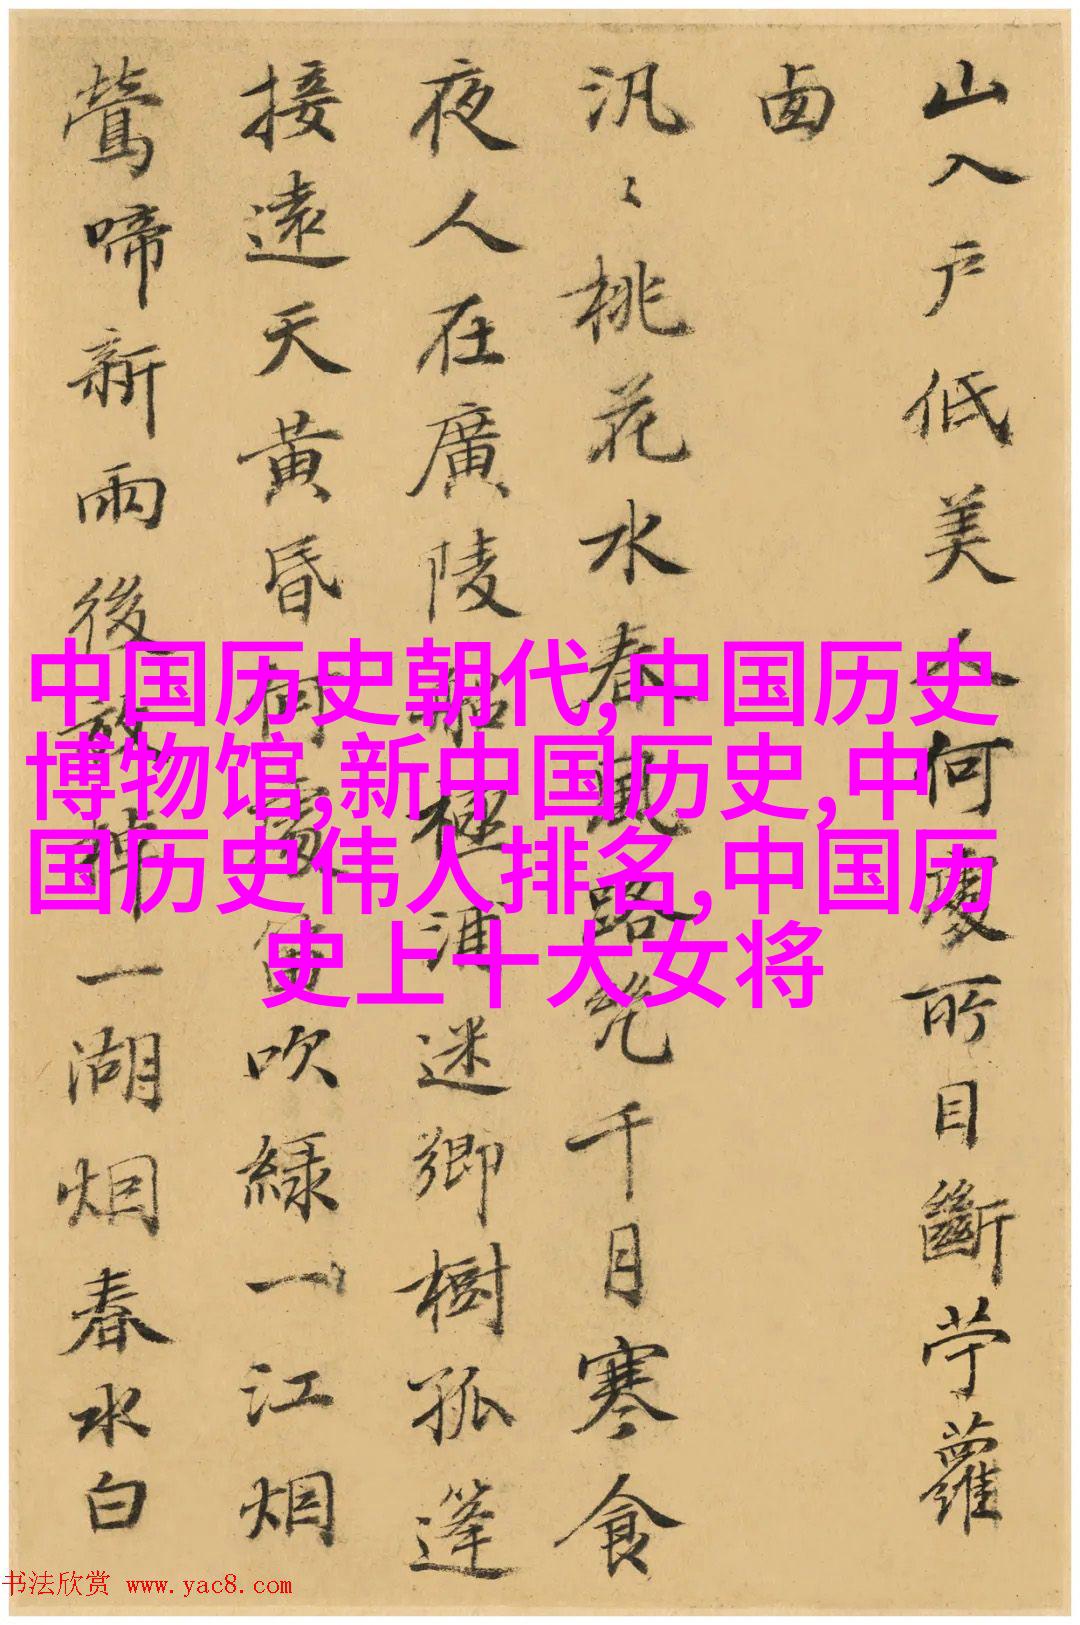 山入戶低美人何處所目斷苧蘿
西
汎〻桃花水春風路絶千月寒食
夜人在廣陵船極浦迷鄉樹孤篷
接遠天黄昏何處笛吹緑一江烟
鶯啼新雨後放棹一湖烟春水白
中国历史朝代,中国历史
博物馆,新中国历史,中
国历史伟人排名,中国历
史上十大女将
书法欣赏 www.yac8.com